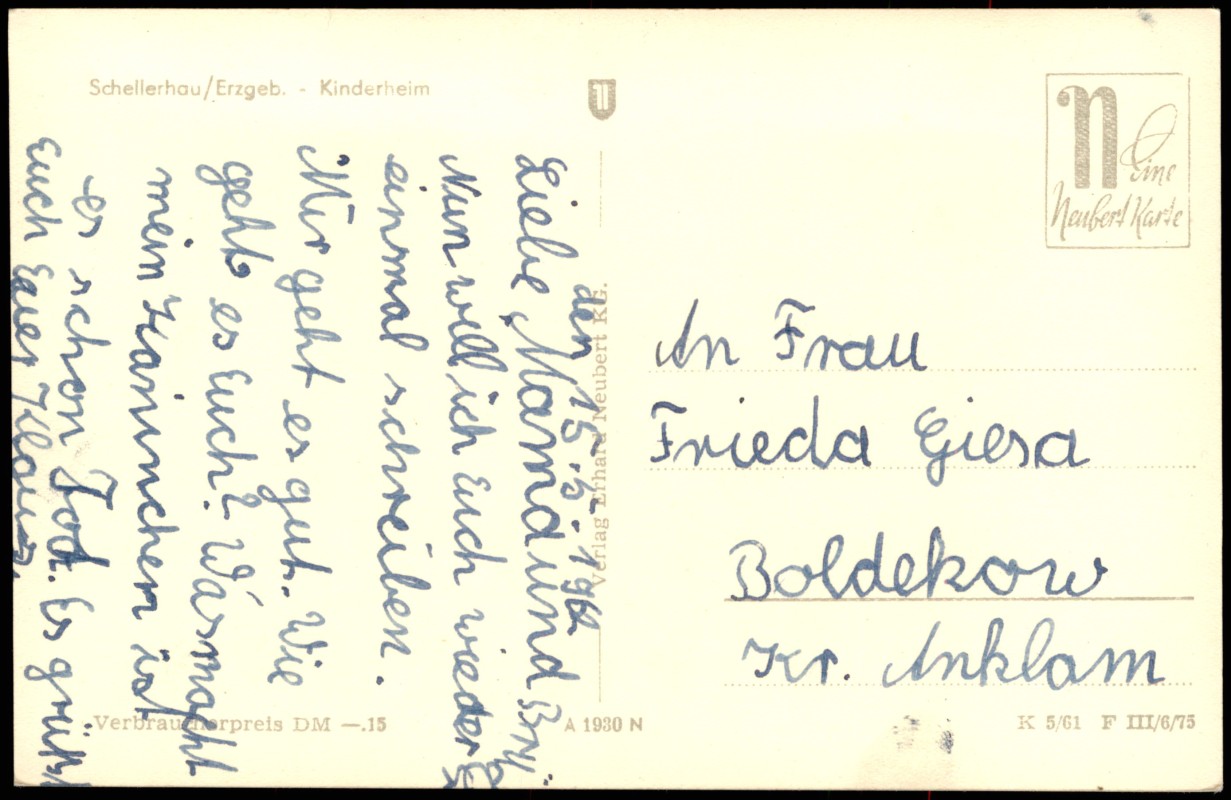 Schellerhau/Erzgeb. - Kinderheim
den 15.5.1962
Liebe Mama und
Nun will ich Euch wieder
einmal schreiben.
Mir geht es gut. Wie
geht es Euch? Was macht
mein Kaninchen ist
er schon Tod. Es grüßt
Euch Euer Klaus.
Verbraucherpreis DM —.15
A 1930 N
Verlag Erhard Neubert KG.
N
Eine
Neubert Karte
An Frau
Frieda Giesa
Boldekow
Kr. Anklam
K 5/61 F III/6/75